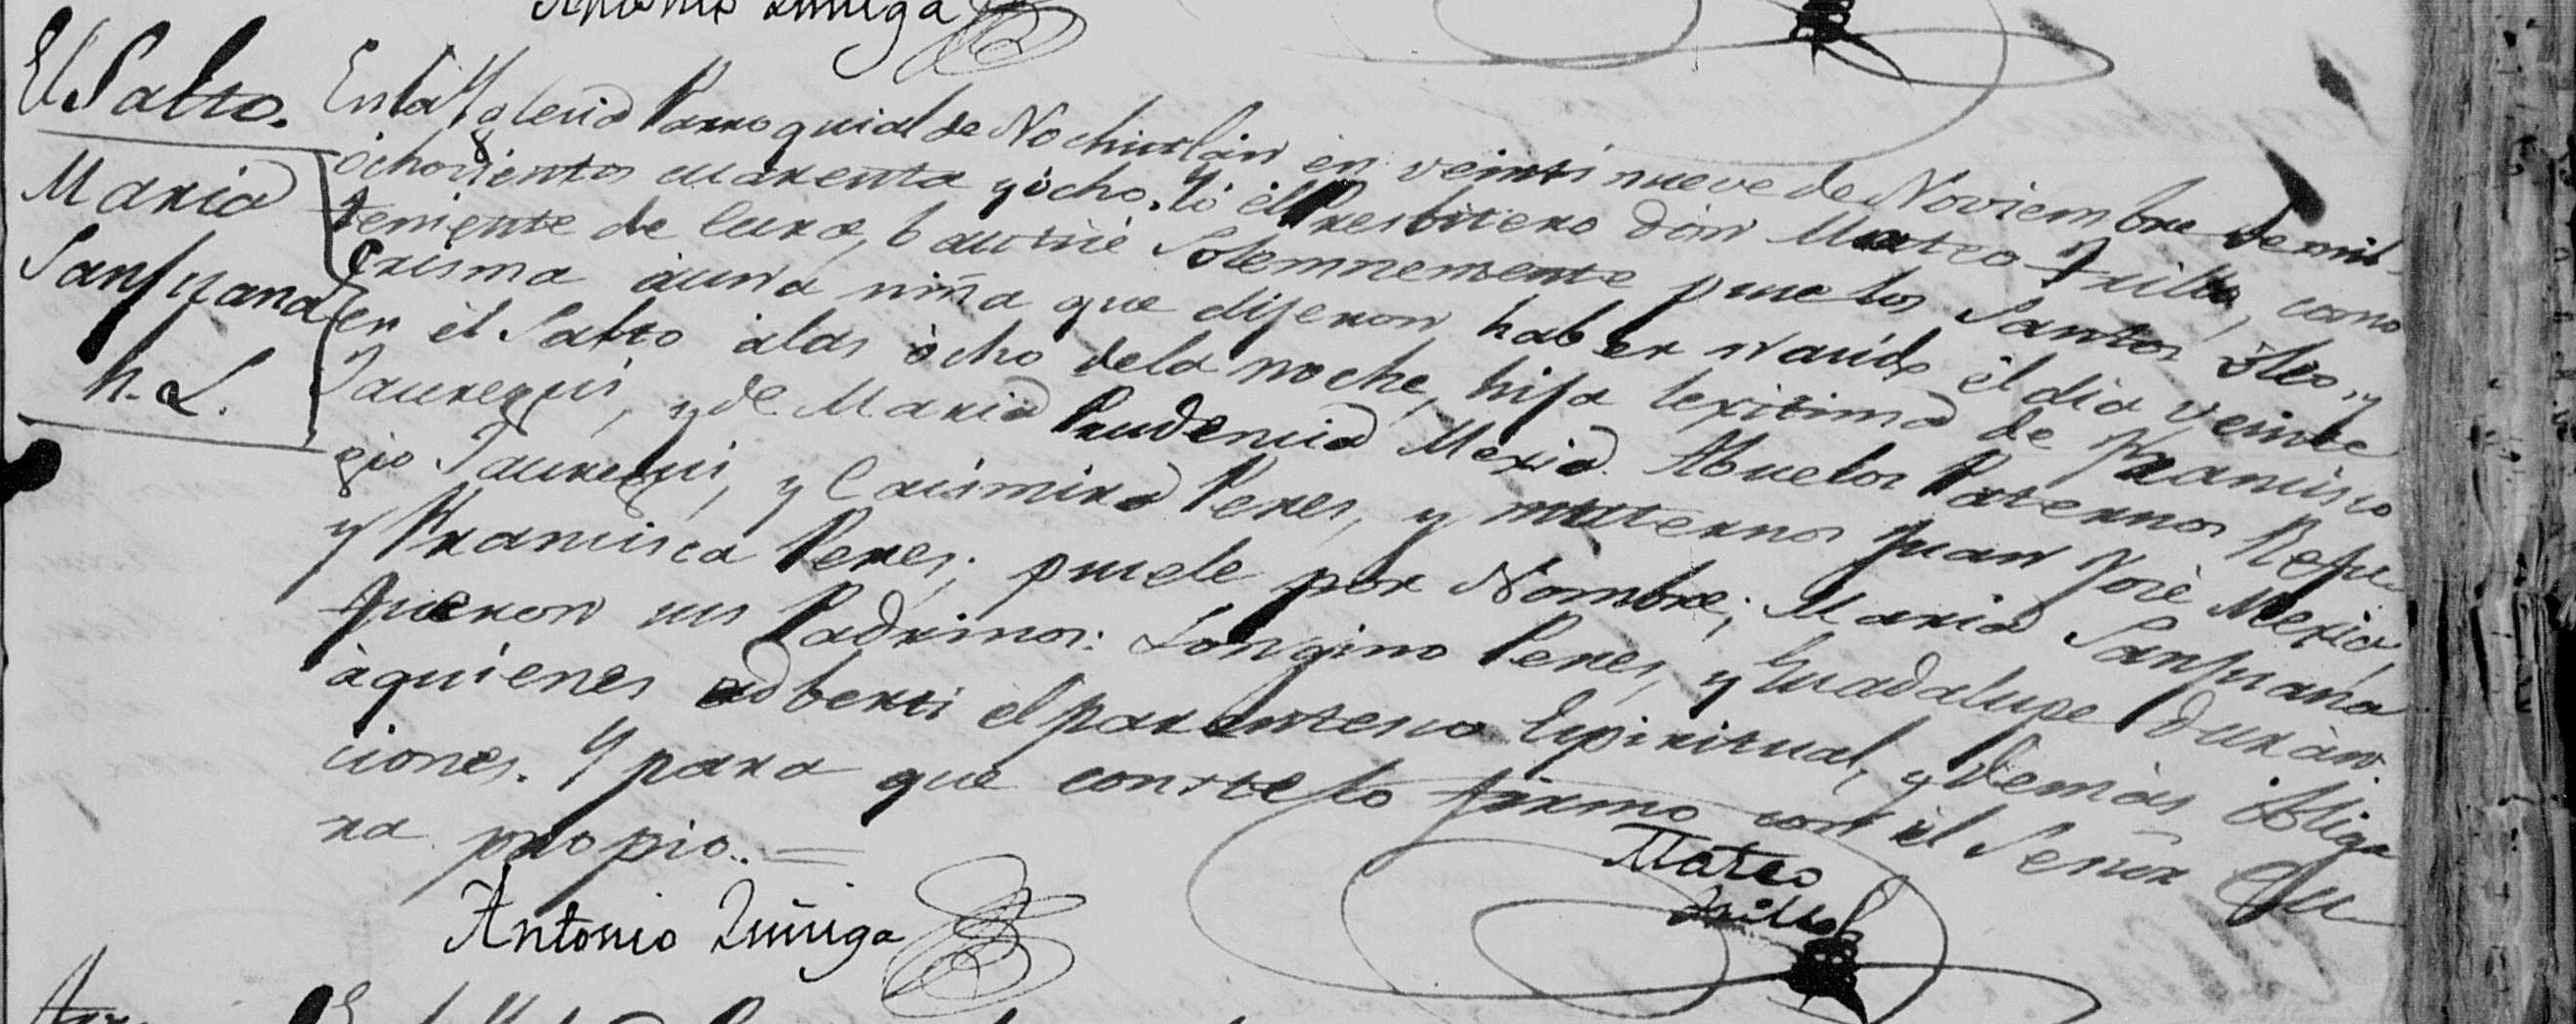 Antonio Zuñiga
El Salto.
Maria
Sanjuana
h. L.
En la Yglecia Parroquial de Nochistlán en veinti nueve de Noviembre de mil
ochocientos cuarenta y ocho. Yó él Presbitero Don Mateo Trillo, como
teniente de Cura, bautisé Solemnemente puse los Santos óleo, y
Crisma áuna niña que dijeron haber nacido él dia veinte
en él Salto álas ócho dela noche, hija lexitima de Francisco
Jauregui, y de Maria Prudencia Mexia. Abuelos Paternos Refu-
gio Jauregui, y Casimira Peres, y maternos Juan José Mexia,
y Francisca Peres; puele por Nombre; Maria Sanjuana
fueron sus Padrinos: Longino Peres, y Guadalupe Durán.
áquienes adberti el parentesco Espiritual, y demás óbliga
ciones. Y para que conste lo firmo con él Señor Cu
ra propio. =
Antonio Zuñiga
Mateo
Trillo